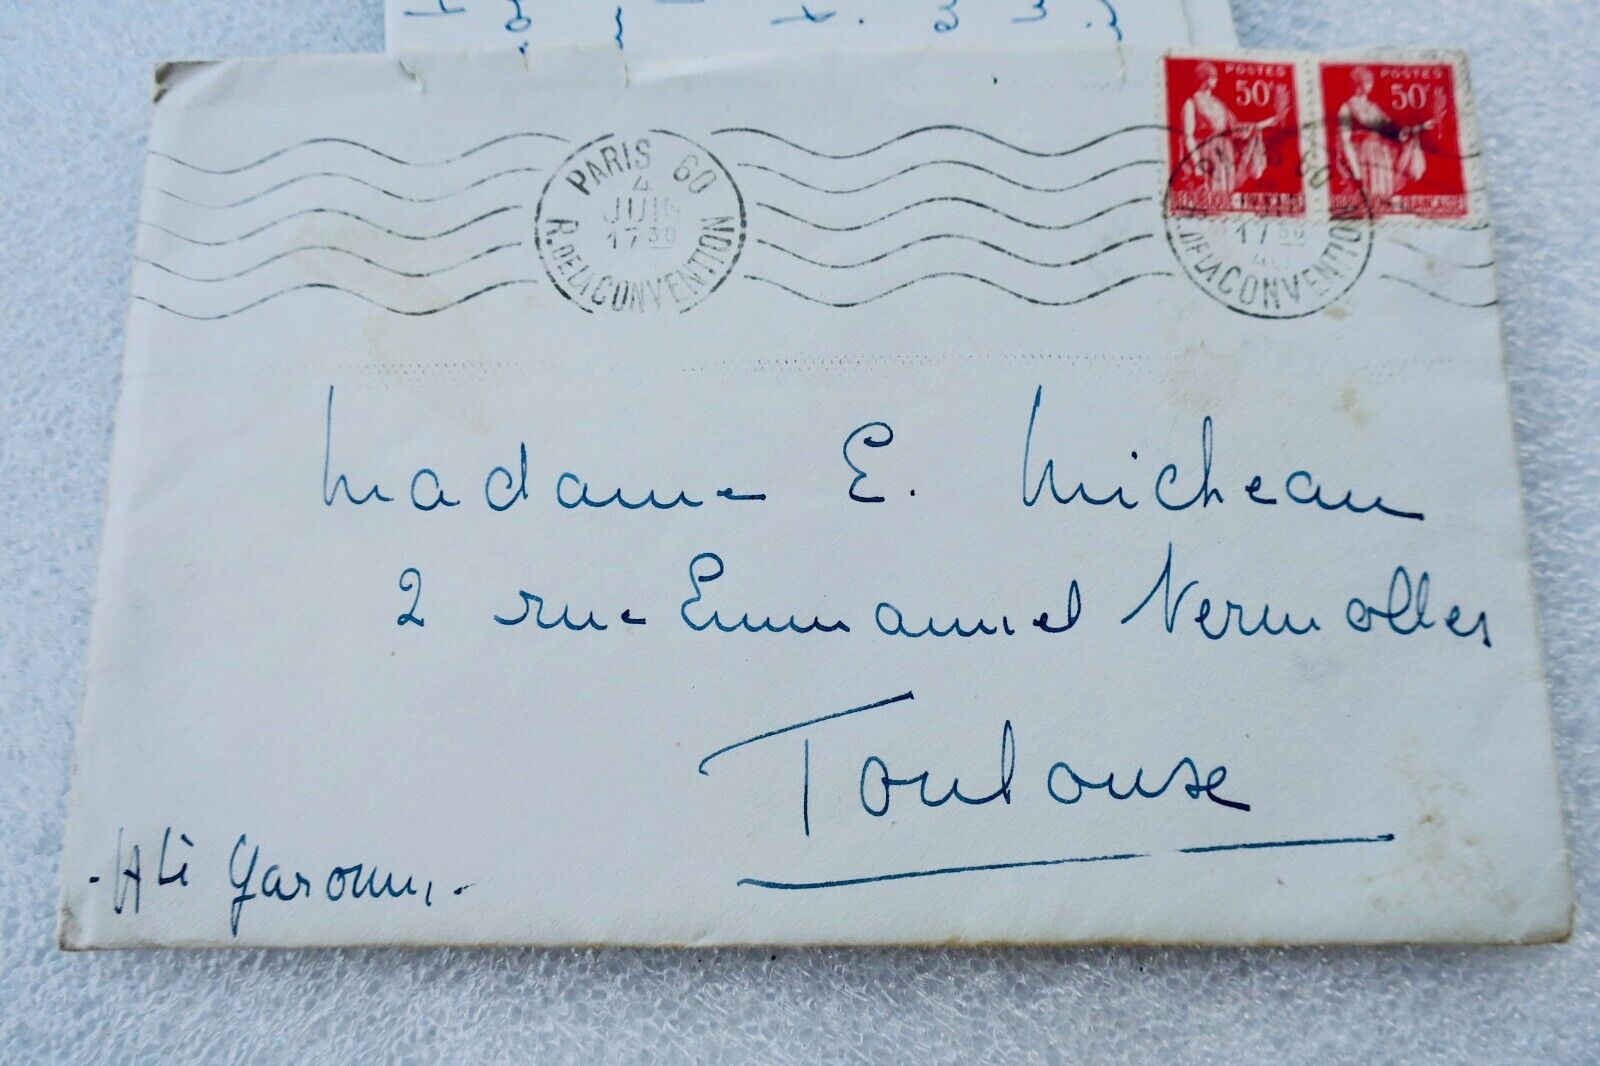 POSTES
50c
POSTES
50c
PARIS 60
4
JUIN
17 30
R. DE LA CONVENTION
17 30
40
R. DE LA CONVENTION
Madame E. Micheau
2 rue Emmanuel Vermolles
Toulouse
- Hte Garonne -